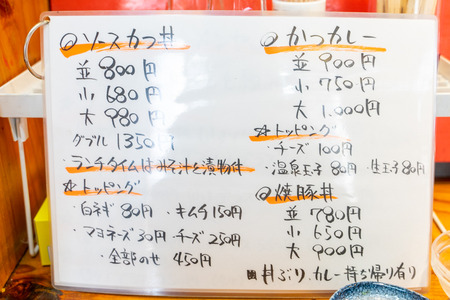 ◎ソースカツ丼
並 800円
小 680円
大 980円
ダブル 1350円
・ランチタイムはみそ汁と漬物付
☆トッピング
・白ネギ 80円 ・キムチ 150円
・マヨネーズ 30円 ・チーズ 250円
・全部のせ 450円
◎カツカレー
並 900円
小 750円
大 1,000円
☆トッピング
・チーズ 100円
・温泉玉子 80円 ・生玉子 80円
◎焼豚丼
並 780円
小 650円
大 900円
丼ぶり、カレー
持ち帰り有り